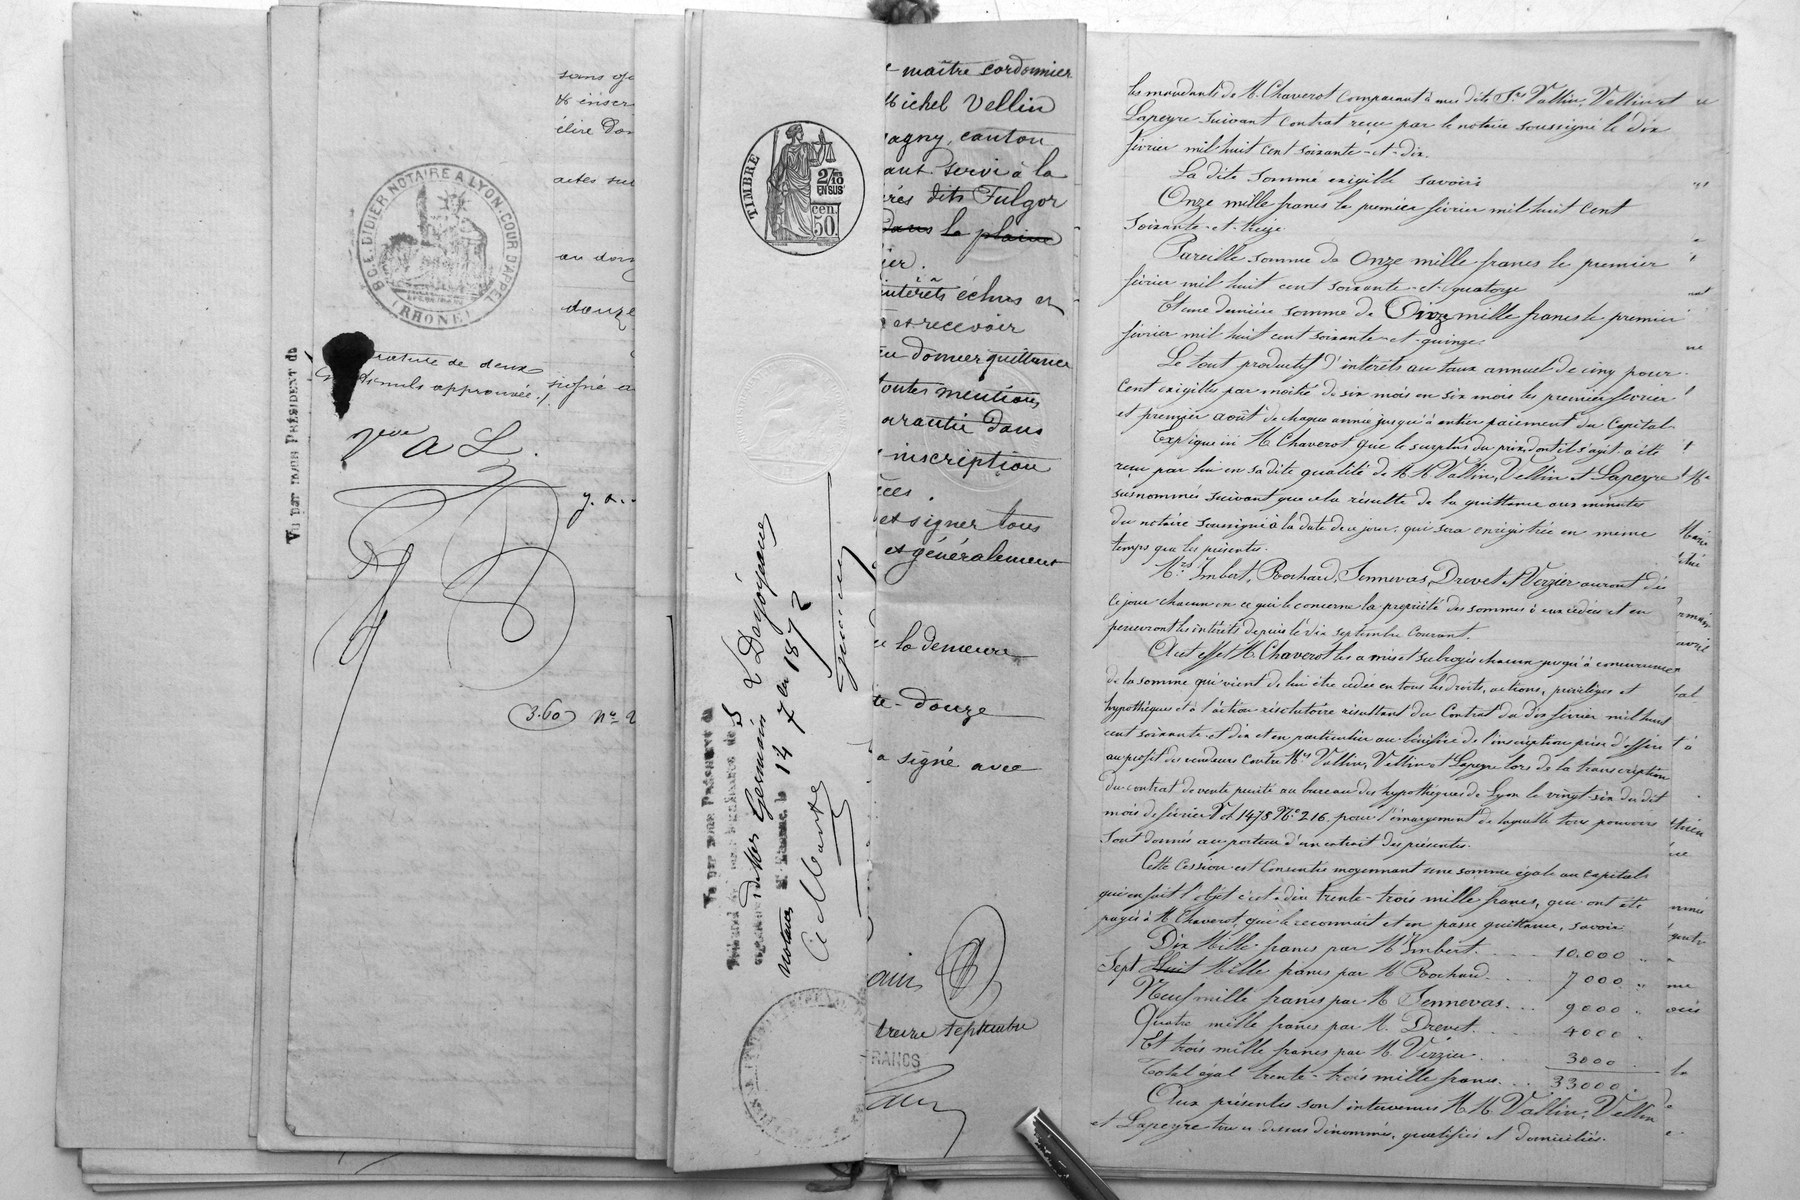 sans
& inscr
élire Dom
actes sur
au dom
douze
B.C.E. DIDIER, NOTAIRE A LYON. COUR D'APPEL
(RHONE)
rature de deux
nuls approuvée. signé a
Vve A L.
3.60 No 2
VU PAR NOUS PRÉSIDENT du
TIMBRE
2/10 EN SUS
cen. 50
VU PAR NOUS PRÉSIDENT du
Tribunal
de Mes Germain & Dagognane
notaires le 14 7bre 1872
e maître cordonnier
Michel Vellin
agny, canton
ant servi à la
rés dits Fulgor
dans le plaine
ier.
intérêts échus et
et recevoir
donner quittance
toutes mentions
arantie dans
inscription
ées.
et signer tous
et généralement
la demeure
te-douze
a signé avec
treize septembre
FRANCS
les mandants de M. Chaverot comparant à mes dits Srs Vallin, Vellin et
Lapeyre suivant contrat reçu par le notaire soussigné le dix
février mil huit cent soixante-et-dix.
La dite somme exigible savoir:
Onze mille francs le premier février mil huit cent
soixante-et-treize
Pareille somme de Onze mille francs le premier
février mil huit cent soixante-et-quatorze
Et une dernière somme de Onze mille francs le premier
février mil huit cent soixante-et-quinze.
Le tout productif d'intérêts au taux annuel de cinq pour
cent exigibles par moitié de six mois en six mois les premier février
et premier août de chaque année jusqu'à entier paiement du Capital.
Explique ici M. Chaverot que le surplus du prix dont il s'agit a été
reçu par lui en sa dite qualité de M.M. Vallin, Vellin et Lapeyre
susnommés suivant que cela résulte de la quittance aux minutes
du notaire soussigné à la date de ce jour, qui sera enregistrée en même
temps que les présentes.
Mrs Imbert, Rochard, Jennevas, Drevet & Verzier auront dès
ce jour chacun en ce qui le concerne la propriété des sommes à eux cédées et en
percevront les intérêts depuis le dix septembre courant.
A cet effet M. Chaverot les a mis et subrogés chacun jusqu'à concurrence
de la somme qui vient de lui être cédée en tous les droits, actions, privilèges et
hypothèques et à l'action résolutoire résultant du Contrat du dix février mil huit
cent soixante-et-dix et en particulier au bénéfice de l'inscription prise d'office
au profit des vendeurs contre Mrs Vallin, Vellin et Lapeyre lors de la transcription
du contrat de vente précité au bureau des hypothèques de Lyon le vingt-six du dit
mois de février Vol 1478 No 216, pour l'émargement de laquelle tous pouvoirs
sont donnés au porteur d'un extrait des présentes.
Cette Cession est Consentie moyennant une somme égale au capital
qui en fait l'objet c'est-à-dire trente-trois mille francs, qui ont été
payés à M. Chaverot qui le reconnait et en passe quittance, savoir:
Dix Mille francs par M. Imbert. 10.000 "
Sept Huit Mille francs par M. Rochard 7 000 "
Neuf mille francs par M. Jennevas. 9000 "
Quatre mille francs par M. Drevet. 4000 "
Et trois mille francs par M. Verzier 3000
Total égal trente-trois mille francs. 33000.
Aux présentes sont intervenus M.M. Vallin, Vellin
et Lapeyre tous ci-dessus dénommés, qualifiés et domiciliés.